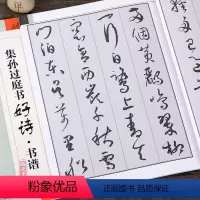 集孙过庭书
好诗·书谱
两个黄鹂鸣翠柳
一行白鹭上青天
窗含西岭千秋雪
门泊东吴万里船
粉象优品 正品保障